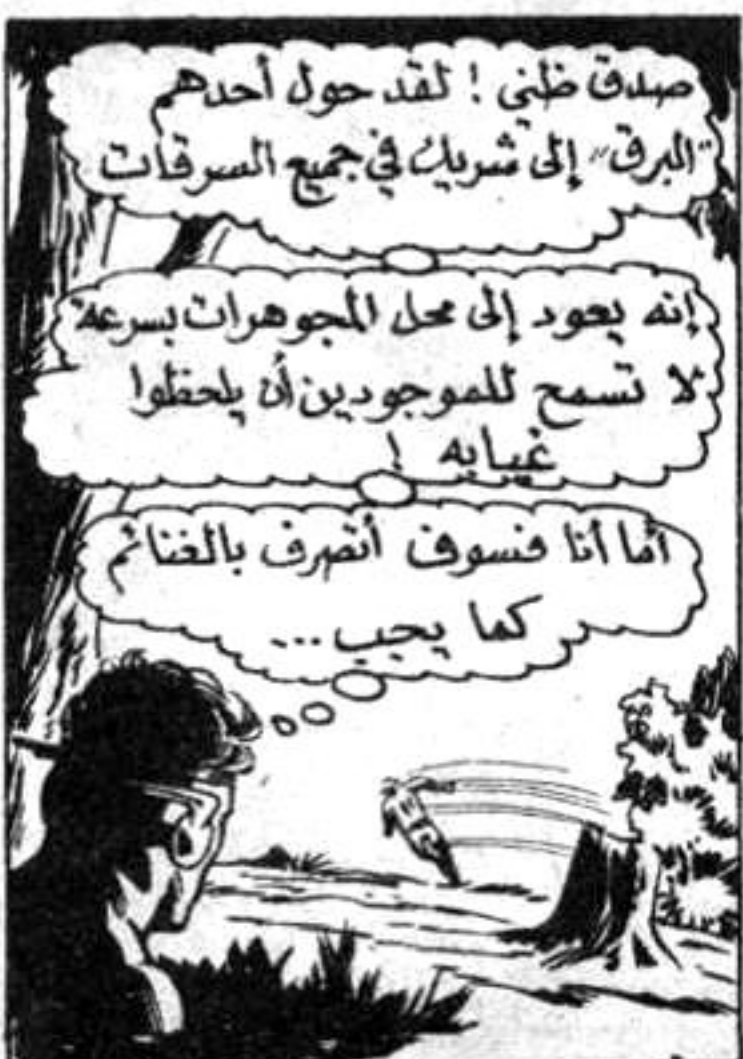 صدق ظني ! لقد حول أحدهم
"البرق" إلى شريك في جميع السرقات
إنه يعود إلى محل المجوهرات بسرعة
لا تسمح للموجودين أن يلحظوا
غيابه !
أما أنا فسوف أتصرف بالغنائم
كما يجب ...